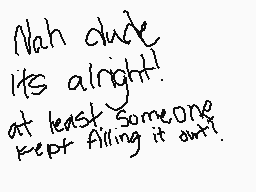 Nah dude
Its alright!
at least someone
kept filling it out!